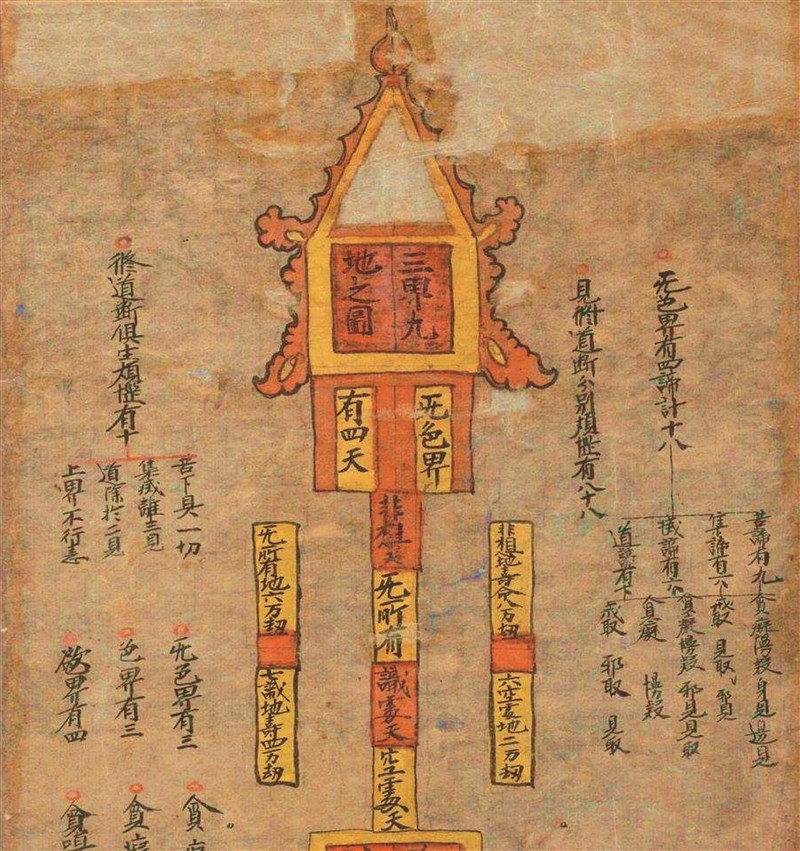 三界九
地之圖
无色界
有四天
非想天
无所有
識處天
空處天
非想地壽八万劫
六空處地二万劫
无所有地六万劫
七識地壽四万劫
无色界有四諦計十八
苦諦有九
貪癡慢疑身見邊見
集諦有六
戒取 見取 邪見
滅諦有六
貪癡慢疑邪見見取
道諦有
貪癡 慢疑
戒取 邪取 見取
見修道断分別煩惱有八十八
修道断俱生煩惱有十
苦下具一切
集滅離三見
道除於二見
上界不行恚
无色界有三
色界有三
欲界有四
貪
貪癡
貪嗔